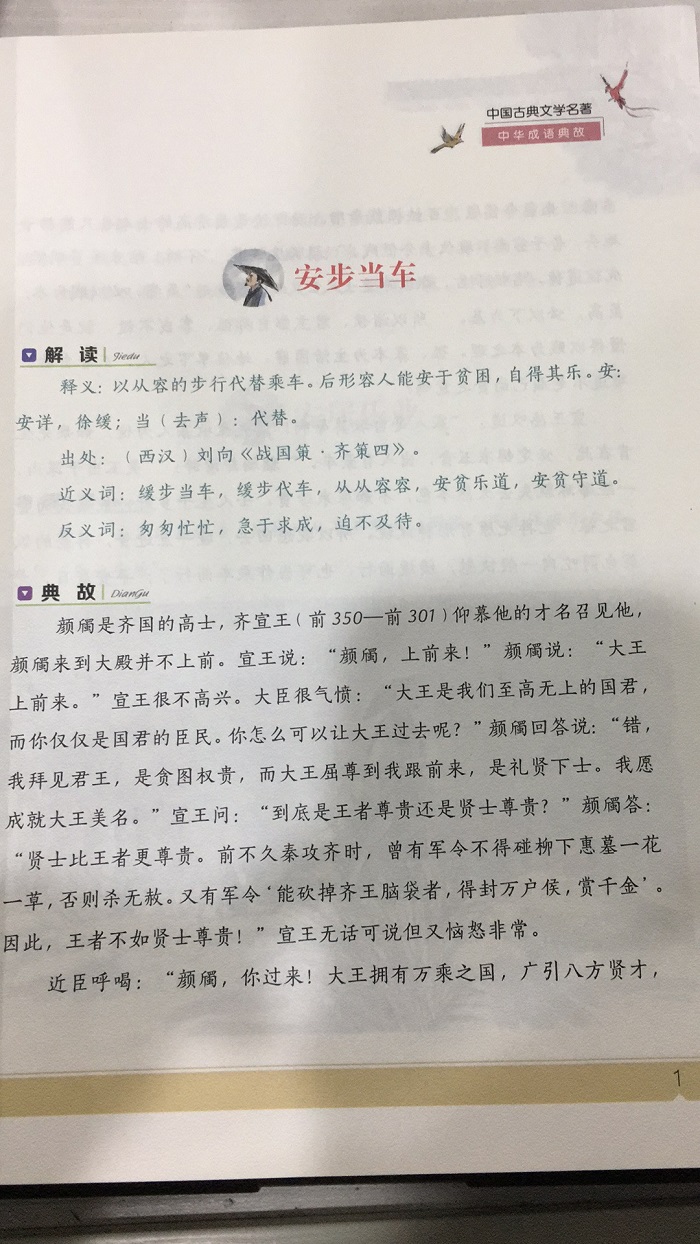 中国古典文学名著
中华成语典故
安步当车
解 读 Jiedu
释义：以从容的步行代替乘车。后形容人能安于贫困，自得其乐。安：
安详，徐缓；当（去声）：代替。
出处：（西汉）刘向《战国策·齐策四》。
近义词：缓步当车，缓步代车，从从容容，安贫乐道，安贫守道。
反义词：匆匆忙忙，急于求成，迫不及待。
典 故 DianGu
颜斶是齐国的高士，齐宣王（前350—前301）仰慕他的才名召见他，
颜斶来到大殿并不上前。宣王说：“颜斶，上前来！”颜斶说：“大王
上前来。”宣王很不高兴。大臣很气愤：“大王是我们至高无上的国君，
而你仅仅是国君的臣民。你怎么可以让大王过去呢？”颜斶回答说：“错，
我拜见君王，是贪图权贵，而大王屈尊到我跟前来，是礼贤下士。我愿
成就大王美名。”宣王问：“到底是王者尊贵还是贤士尊贵？”颜斶答：
“贤士比王者更尊贵。前不久秦攻齐时，曾有军令不得碰柳下惠墓一花
一草，否则杀无赦。又有军令‘能砍掉齐王脑袋者，得封万户侯，赏千金’。
因此，王者不如贤士尊贵！”宣王无话可说但又恼怒非常。
近臣呼喝：“颜斶，你过来！大王拥有万乘之国，广引八方贤才，
1